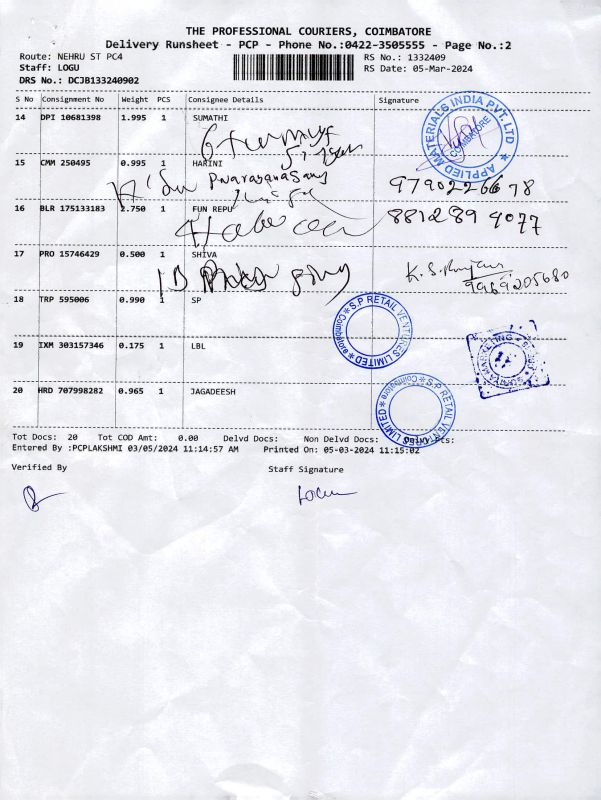 THE PROFESSIONAL COURIERS, COIMBATORE
Delivery Runsheet - PCP - Phone No.:0422-3505555 - Page No.:2
Route: NEHRU ST PC4 RS No.: 1332409
Staff: LOGU RS Date: 05-Mar-2024
DRS No.: DCJB133240902
S No Consignment No Weight PCS Consignee Details Signature
14 DPI 10681398 1.995 1 SUMATHI
APPLIED MATERIALS INDIA PVT. LTD
COIMBATORE
15 CMM 250495 0.995 1 HARINI
9790226678
16 BLR 175133183 2.750 1 FUN REPU
881289 9077
17 PRO 15746429 0.500 1 SHIVA
K.S.
9969205680
18 TRP 595006 0.990 1 SP
S.P RETAIL VENTURES LIMITED
Coimbatore
19 IXM 303157346 0.175 1 LBL
MARKETING
20 HRD 707998282 0.965 1 JAGADEESH
S.P RETAIL VENTURES LIMITED
Coimbatore
Tot Docs: 20 Tot COD Amt: 0.00 Delvd Docs: Non Delvd Docs: Only Pcs:
Entered By :PCPLAKSHMI 03/05/2024 11:14:57 AM Printed On: 05-03-2024 11:15:02
Verified By Staff Signature